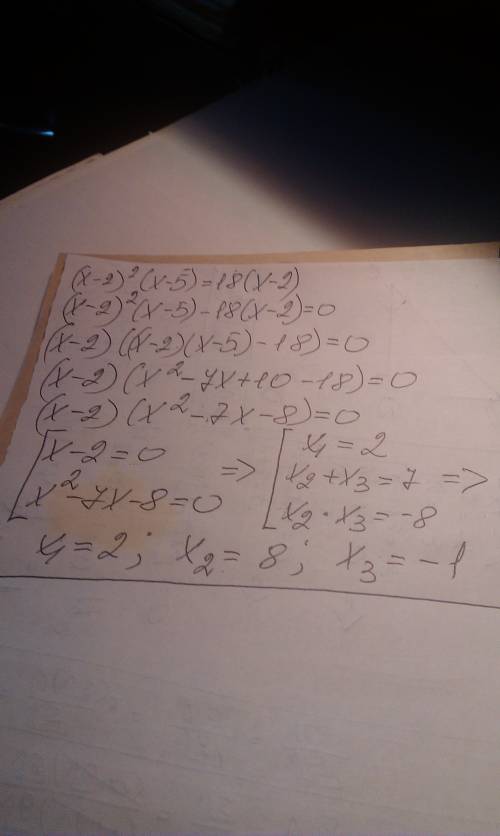 (x-2)²(x-5)=18(x-2)
(x-2)²(x-5)-18(x-2)=0
(x-2)((x-2)(x-5)-18)=0
(x-2)(x²-7x+10-18)=0
(x-2)(x²-7x-8)=0
[x-2=0 => [x₁=2
x²-7x-8=0 x₂+x₃=7 =>
x₂·x₃=-8
x₁=2; x₂=8; x₃=-1